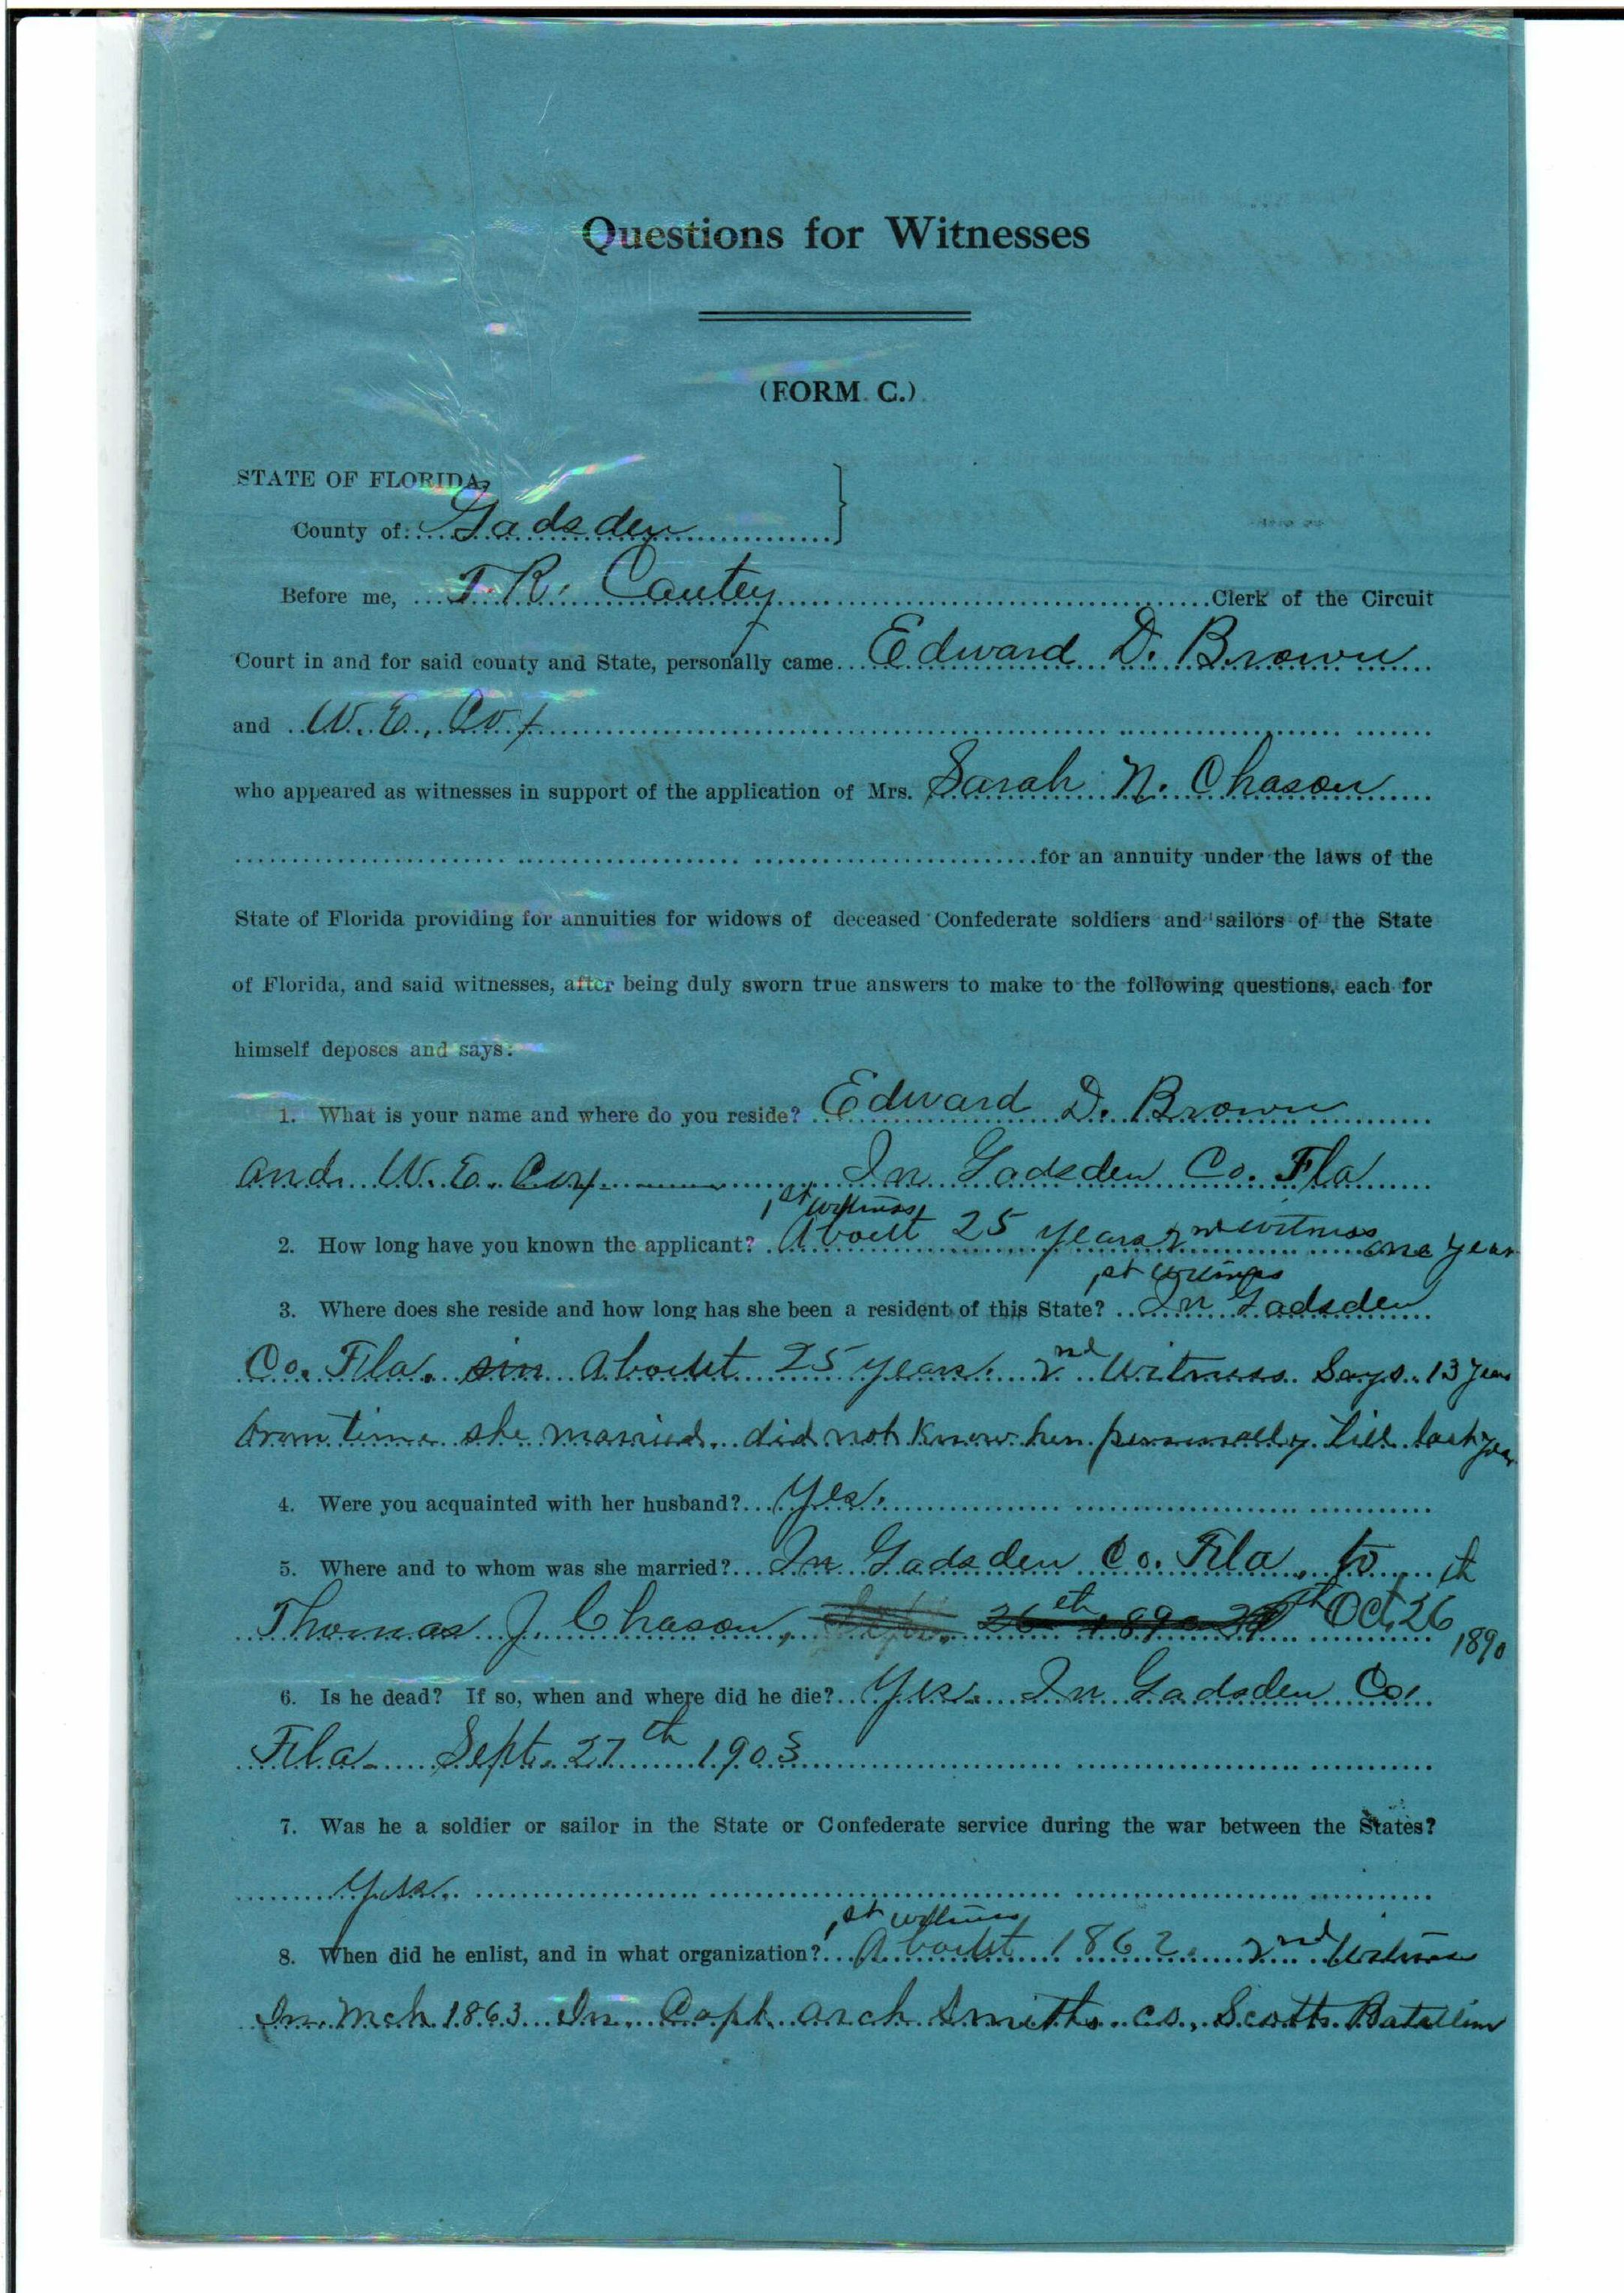 Questions for Witnesses
(FORM C.)
STATE OF FLORIDA,
County of: Gadsden
Before me, T. R. Cantey Clerk of the Circuit
Court in and for said county and State, personally came Edward D. Brown
and W. E. Cox
who appeared as witnesses in support of the application of Mrs. Sarah N. Chason
for an annuity under the laws of the
State of Florida providing for annuities for widows of deceased Confederate soldiers and sailors of the State
of Florida, and said witnesses, after being duly sworn true answers to make to the following questions, each for
himself deposes and says:
1. What is your name and where do you reside? Edward D. Brown
and W. E. Cox In Gadsden Co. Fla
1st witness
2. How long have you known the applicant? About 25 years 2nd witness one year
1st witness
3. Where does she reside and how long has she been a resident of this State? In Gadsden
Co. Fla. sin about 25 years. 2nd Witness Says 13 years
from time she married. did not know her personally till last year
4. Were you acquainted with her husband? Yes.
5. Where and to whom was she married? In Gadsden Co. Fla, to
Thomas J. Chason, 26th 1890 Oct. 26th 1890
6. Is he dead? If so, when and where did he die? Yes. In Gadsden Co.
Fla. Sept. 27th 1903
7. Was he a soldier or sailor in the State or Confederate service during the war between the States?
Yes.
1st witness
8. When did he enlist, and in what organization? About 1862. 2nd Witness
In Mch 1863 In Capt. Arch Smiths co., Scotts Batallion